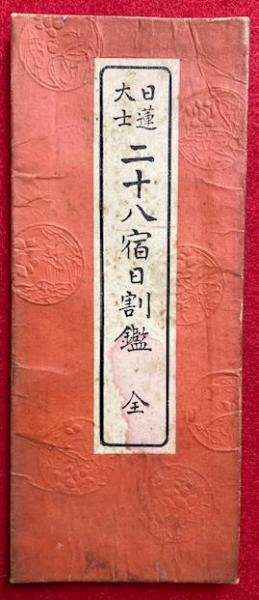 日蓮
大士
二十八宿日割鑑 全